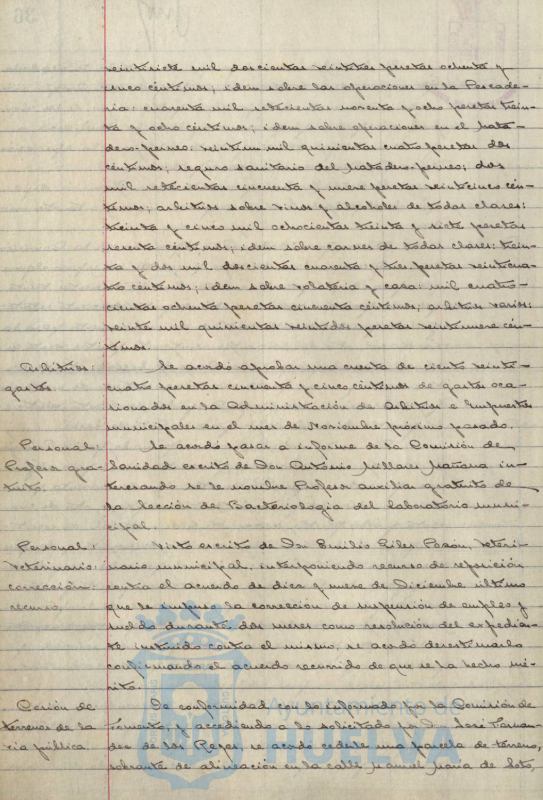 veintisiete mil doscientas veintitres pesetas ochenta y
cinco céntimos; idem sobre las operaciones en la Pescade-
ria: cuarenta mil setecientas noventa y ocho pesetas trein-
ta y ocho céntimos; idem sobre operaciones en el mata-
dero-perneo: veintiun mil quinientas cuatro pesetas dos
céntimos; seguro sanitario del matadero-perneo; dos
mil setecientas cincuenta y nueve pesetas veinticinco cén-
timos; arbitrios sobre vinos y alcoholes de todas clases:
treinta y cinco mil ochocientas treinta y siete pesetas
sesenta céntimos; idem sobre carnes de todas clases: trein-
ta y dos mil doscientas cuarenta y tres pesetas veinticua-
tro céntimos; idem sobre volateria y caza: mil cuatro-
cientas ochenta pesetas cincuenta céntimos; arbitrios varios:
veinte mil quinientas veintidos pesetas veintinueve cén-
timos.
Arbitrios:
gastos
Se acordó aprobar una cuenta de ciento veinti-
cuatro pesetas cincuenta y cinco céntimos de gastos oca-
sionados en la Administración de Arbitrios e Impuestos
municipales en el mes de Noviembre próximo pasado.
Personal:
Profesor gra-
tuito.
Se acordó pasar a informe de la Comisión de
Sanidad escrito de Don Antonio Millares Mañana in-
teresando se le nombre Profesor auxiliar gratuito de
la Sección de Bacteriologia del laboratorio muni-
cipal.
Personal:
Veterinario:
corrección:
recurso,
Visto escrito de Don Emilio Giles Pozón, Veteri-
nario municipal, interponiendo recurso de reposición
contra el acuerdo de diez y nueve de Diciembre último
que le impuso la corrección de suspensión de empleo y
sueldo durante dos meses como resolución del expedien-
te instruido contra el mismo, se acordó desestimarlo
confirmando el acuerdo recurrido de que se ha hecho mé-
rito.
Cesión de
terrenos de la
via pública.
De conformidad con lo informado por la Comisión de
Fomento, y accediendo a lo solicitado por Don José Fernan-
dez de los Reyes, se acordó cederle una parcela de terreno,
sobrante de alineación en la calle Manuel Maria de Soto,
Ayuntamiento de
HUELVA